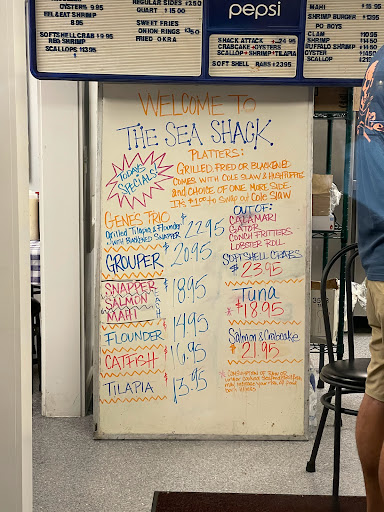 OYSTERS 9.95
EEL & EAT SHRIMP
8.95
SOFTSHELL CRAB 9.95
REG SHRIMP
SCALLOPS 13.95
REGULAR SIDES 2.50
QUART $15.00
SWEET FRIES
ONION RINGS
FRIED OKRA
pepsi
SHACK ATTACK 24.95
CRABCAKE+OYSTERS
SCALLOP+SHRIMP+TILAPIA
SOFT SHELL
MAHI
SHRIMP BURGER
PO BOYS
CLAM
SHRIMP
BUFFALO SHRIMP
OYSTER
SCALLOP
WELCOME TO
THE SEA SHACK
TODAYS
SPECIALS!
PLATTERS:
GRILLED, FRIED OR BLACKENED
COMES WITH COLE SLAW & HUSHPUPPIES
AND CHOICE OF ONE MORE SIDE.
IT'S $1.00 to SWAP out Cole SLAW
GENES TRIO
Grilled Tilapia & Flounder
with BLACKENED SHRIMP
$22.95
GROUPER $20.95
SNAPPER
SALMON
MAHI
EACH
$18.95
FLOUNDER $14.95
CATFISH $16.95
TILAPIA $13.95
OUT OF:
CALAMARI
GATOR
CONCH FRITTERS
LOBSTER ROLL
SOFT SHELL CRABS
$23.95
Tuna
*$18.95
Salmon & Crabcake
*$21.95
* CONSUMPTION OF RAW OR
under cooked
may increase your risk of food
born illness